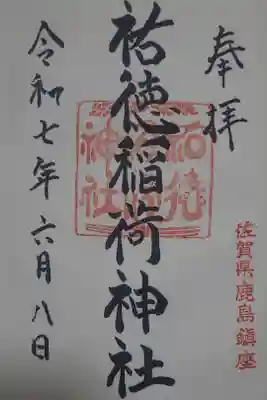 奉拝
祐徳稲荷神社
祐徳
稲荷
神社
佐賀県鹿島鎮座
令和七年六月八日